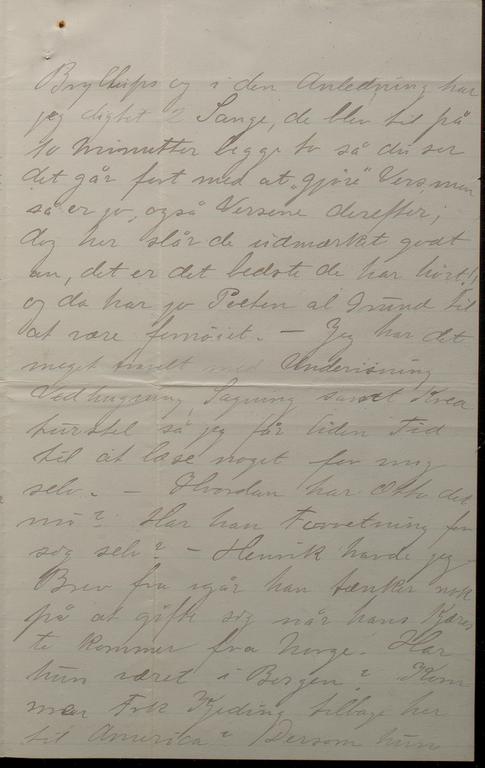 Bryllups og i den Anledning har
jeg digtet 2 Sange, de blev til på
10 Minutter begge to så du ser
det går fort med at "gjöre" Vers men
så er jo, også Versene derefter;
dog her slår de udmærkt godt
an, det er det bedste de har hört!!
og da har jo Poeten al Grund til
at være fornöiet. — Jeg har det
meget travelt med Underisning
Vedhugning, Sagning samt Krea
turstel så jeg får liden Tid
til at læse noget for mig
selv. — Hvordan har Otto det
nu? Har han Forretning for
sig selv? — Henrik havde jeg
Brev fra igår han tænker nok
på at gifte sig når hans Kjæres
te kommer fra Norge. Har
hun været i Bergen? Kom
mer Frk Kjeding tilbage her
til America? Dersom hun